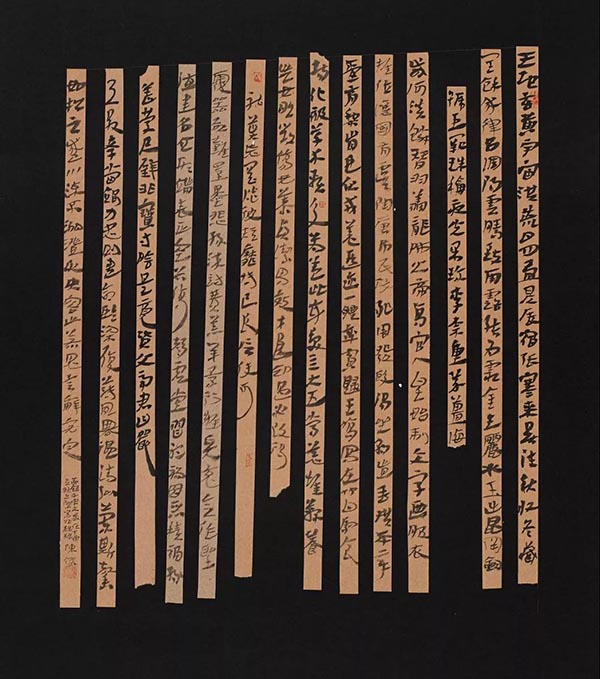 天地玄黄宇宙洪荒日月盈昃辰宿列張寒来暑往秋收冬藏
閏餘成律吕調陽雲騰致雨露結为霜金生麗水玉出崑岡劍
號巨闕珠稱夜光果珍李柰重芥薑海
鹹河淡鱗潛羽翔龍師火帝鳥官人皇始制文字乃服衣
推位讓國有虞陶唐弔民伐罪周發殷湯坐朝問道垂拱平
愛育黎首臣伏戎羌遐邇一體率賓歸王鳴鳳在竹白駒食
場化被草木賴及萬方蓋此身髮四大五常恭惟鞠養
豈敢毀傷女慕貞潔男效才良知過必改得
能莫忘罔談彼短靡恃己長信使可
覆器欲難量墨悲絲染詩讚羔羊景行維賢克念作聖
德建名立形端表正空谷傳聲虛堂習聽禍因惡積福緣
善慶尺璧非寶寸陰是競資父事君曰嚴
與敬孝當竭力忠則盡命臨深履薄夙興溫凊似蘭斯馨
如松之盛川流不息淵澄取映容止若思言辭安定